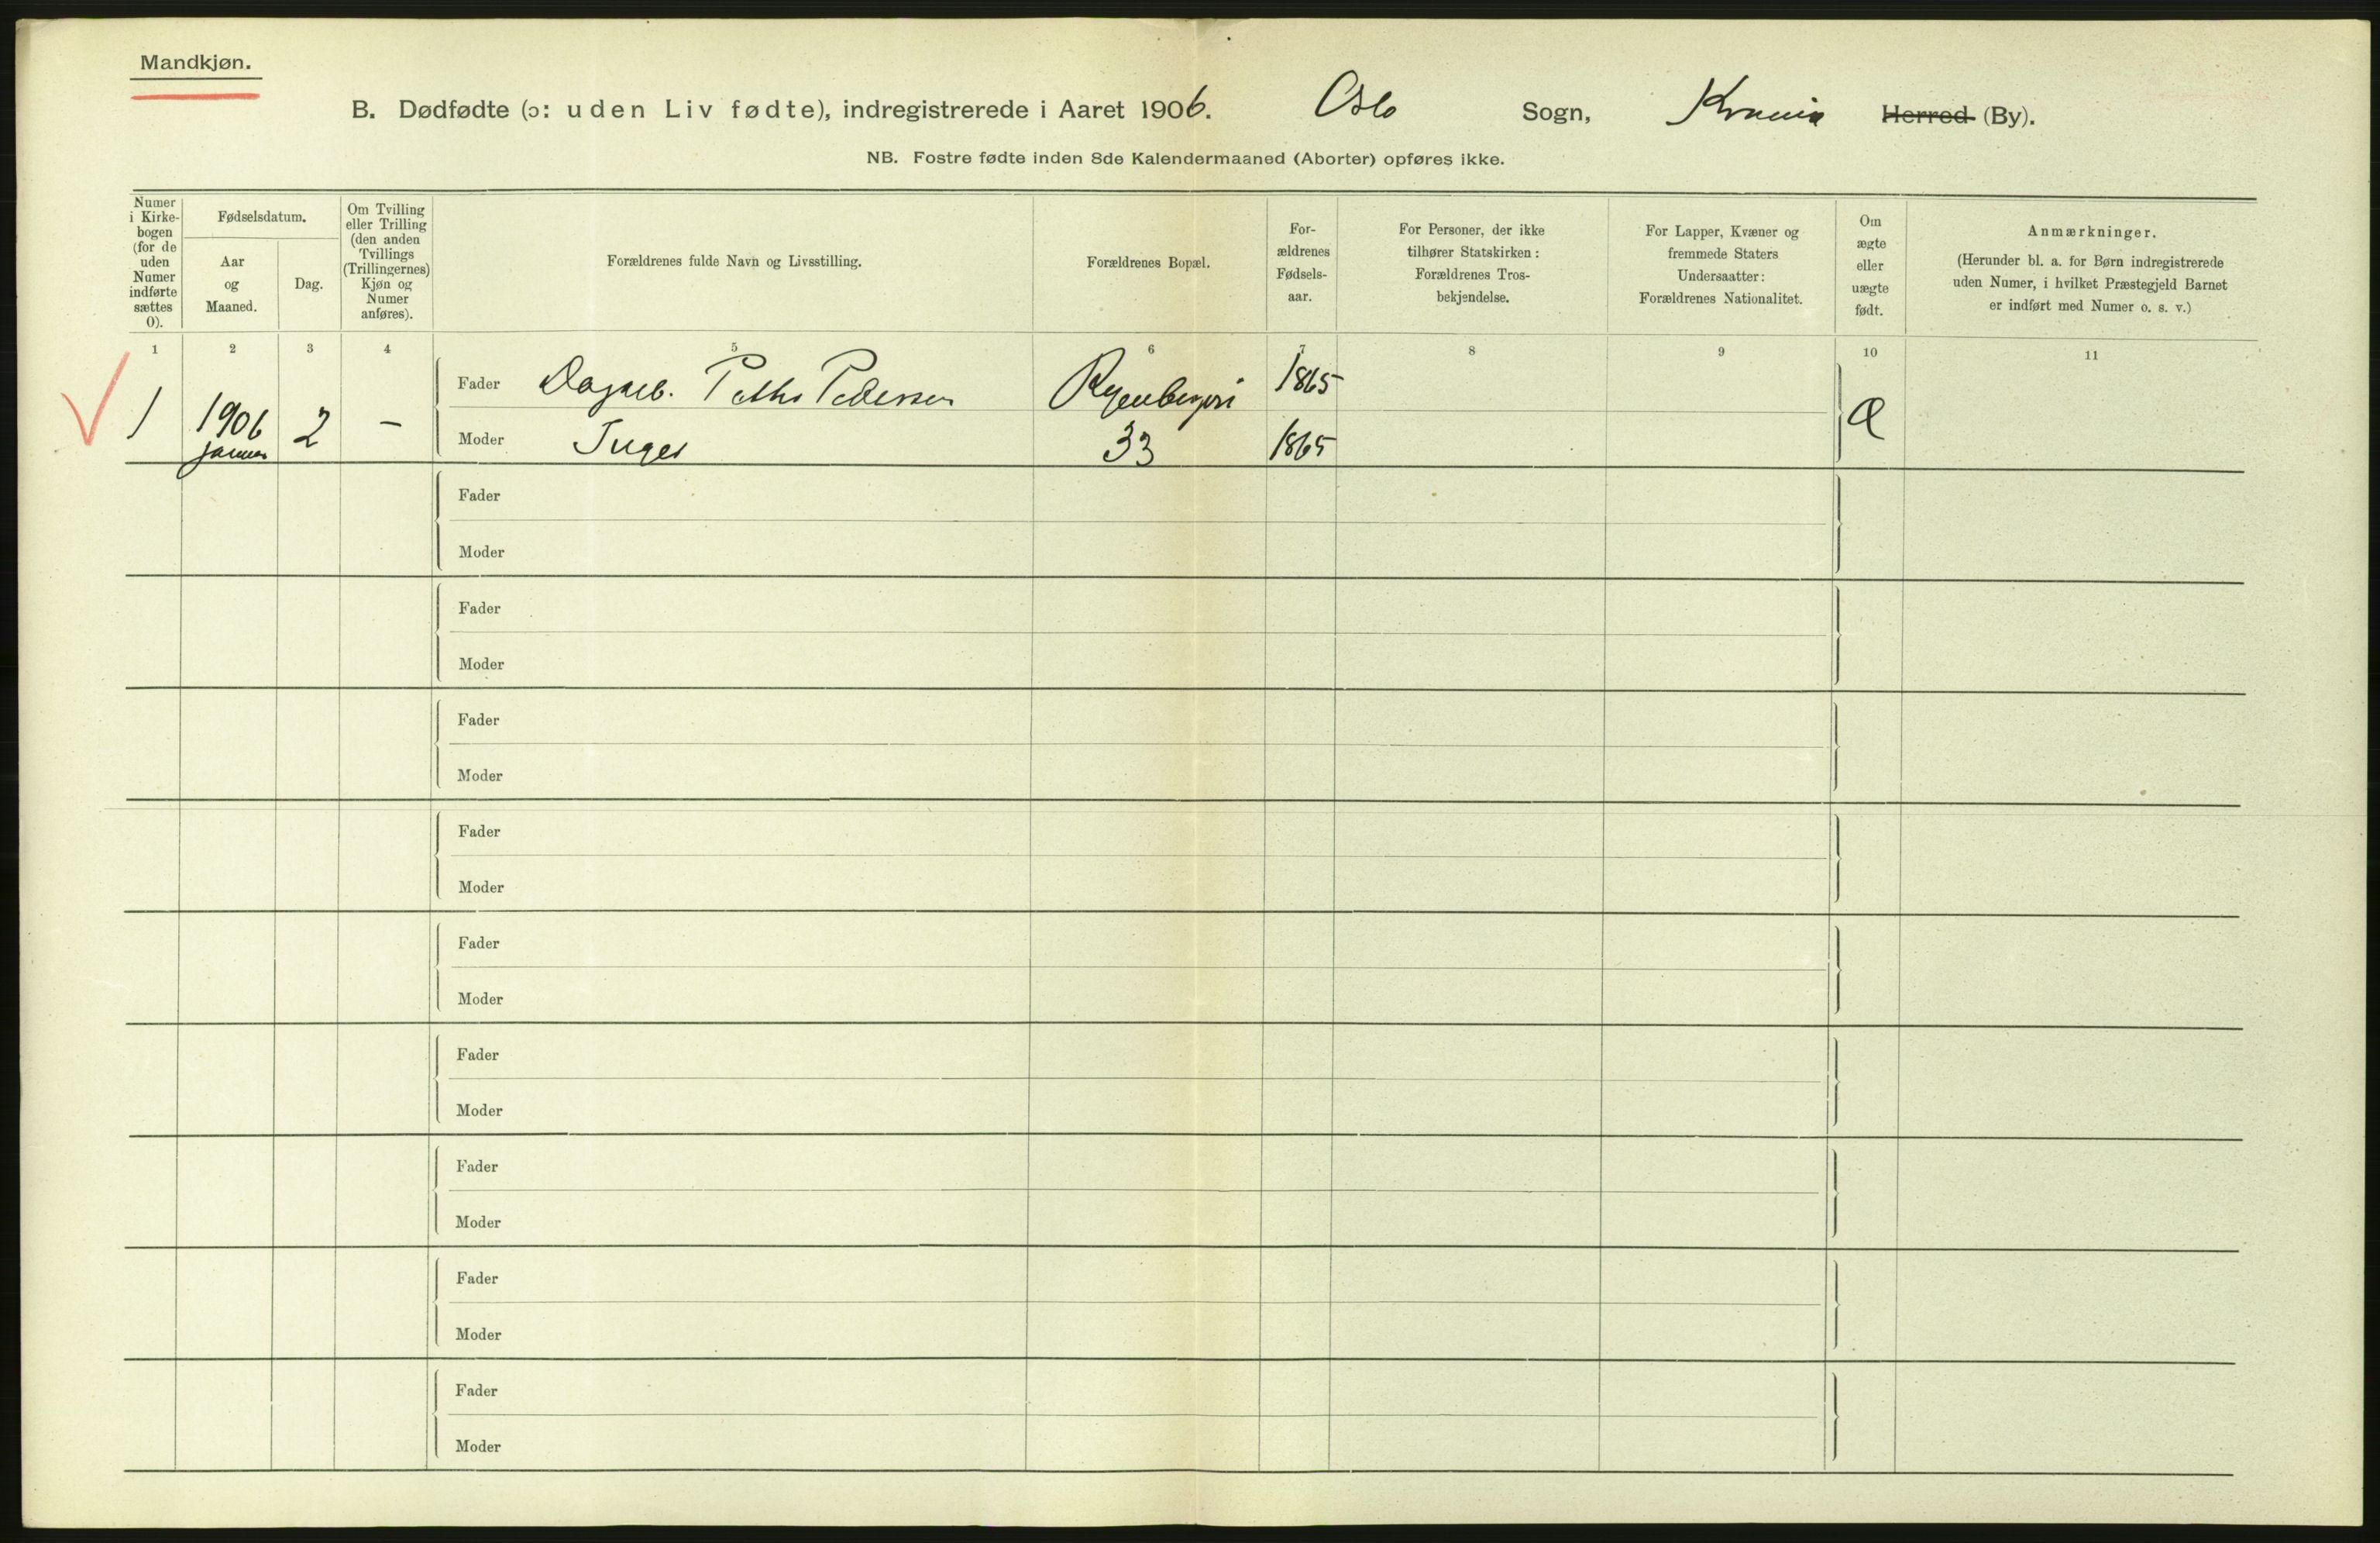 Mandkjøn.
B. Dødfødte (ɔ: uden Liv fødte), indregistrerede i Aaret 1906. Oslo Sogn, Kr.ania Herred (By).
NB. Fostre fødte inden 8de Kalendermaaned (Aborter) opføres ikke.
Numer i Kirke-
bogen
(for de
uden
Numer
indførte
sættes
0).
Fødselsdatum.
Aar
og
Maaned.
Dag.
Om Tvilling
eller Trilling
(den anden
Tvillings
(Trillingernes)
Kjøn og
Numer
anføres).
Forældrenes fulde Navn og Livsstilling.
Forældrenes Bopæl.
For-
ældrenes
Fødsels-
aar.
For Personer, der ikke
tilhører Statskirken:
Forældrenes Tros-
bekjendelse.
For Lapper, Kvæner og
fremmede Staters
Undersaatter:
Forældrenes Nationalitet.
Om
ægte
eller
uægte
født.
Anmærkninger.
(Herunder bl. a. for Børn indregistrerede
uden Numer, i hvilket Præstegjeld Barnet
er indført med Numer o. s. v.)
1 2 3 4 5 6 7 8 9 10 11
Fader Pedersen 1865
1 1906 2 – Æ
Januar Moder 33 1865
Fader
Moder
Fader
Moder
Fader
Moder
Fader
Moder
Fader
Moder
Fader
Moder
Fader
Moder
Fader
Moder
Fader
Moder